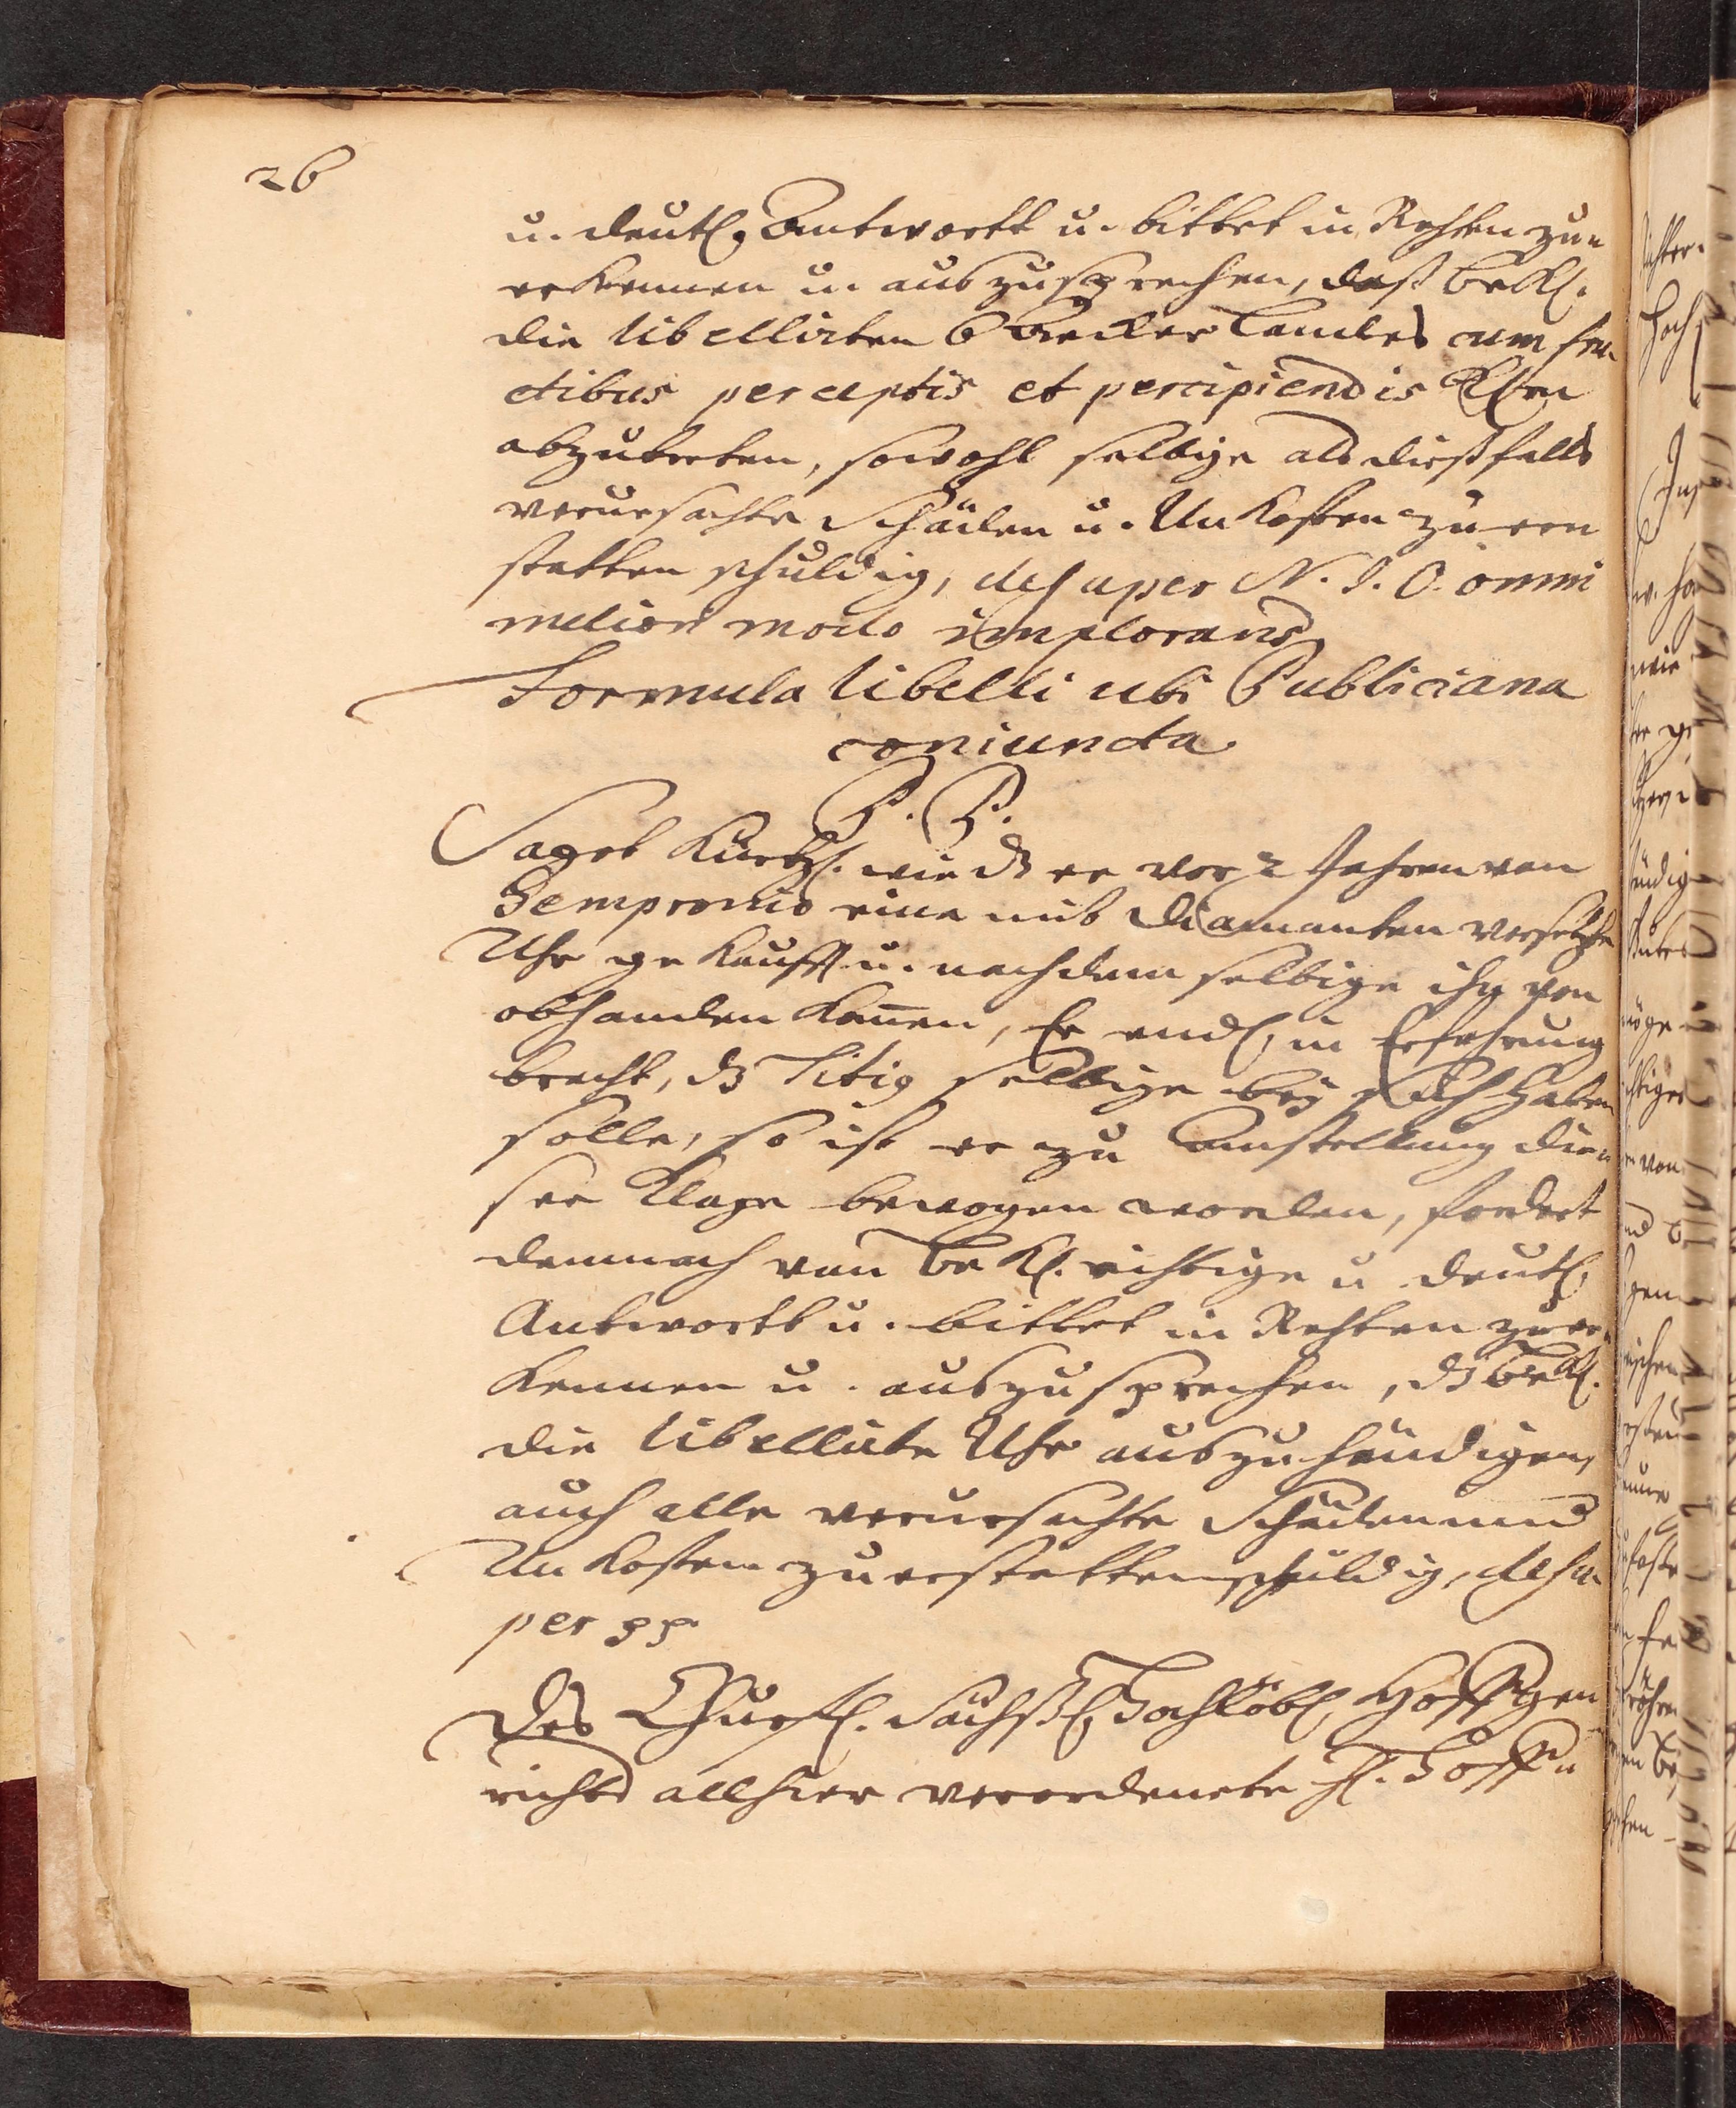 26
u. deutl. Antwortt u. bittet in Rechten zu
erkennen u. auszusprechen, daß Bekl.
die libellirten 6 Aecker Landes cum fru-
ctibus perceptis et percipiendis Klrn
abzutreten, sowohl selbige als dießfalls
verursachte Schäden u. Unkosten zu er-
statten schuldig, desuper N. J. O. omni
meliori modo implorans
Formula libelli ubi Publiciana
coniuncta
P. P.
Saget kürtzl. wie dß er vor 2 Jahren von
Sempronio eine mit Diamanten versetzte
Uhr gekaufft u. nachdem selbige ihm von
abhanden kom̃en, Er endl. in Erfahrung
bracht, dß Titig selbige bey sich haben
solle, so ist er zu Anstellung die-
ser Klage bewogen worden, fordert
demnach von Bekl. richtige u. deutl.
Antwortt u. bittet in Rechten zu er-
kennen u. auszusprechen, dß Bekl.
die libellirte Uhr auszuhändigen,
auch alle verursachte Schäden und
Unkosten zu erstatten schuldig, desu-
per pp.
Des Churfl. Sächß. Hochlöbl. Hoffge-
richts allhier verordenete H. Hoff-